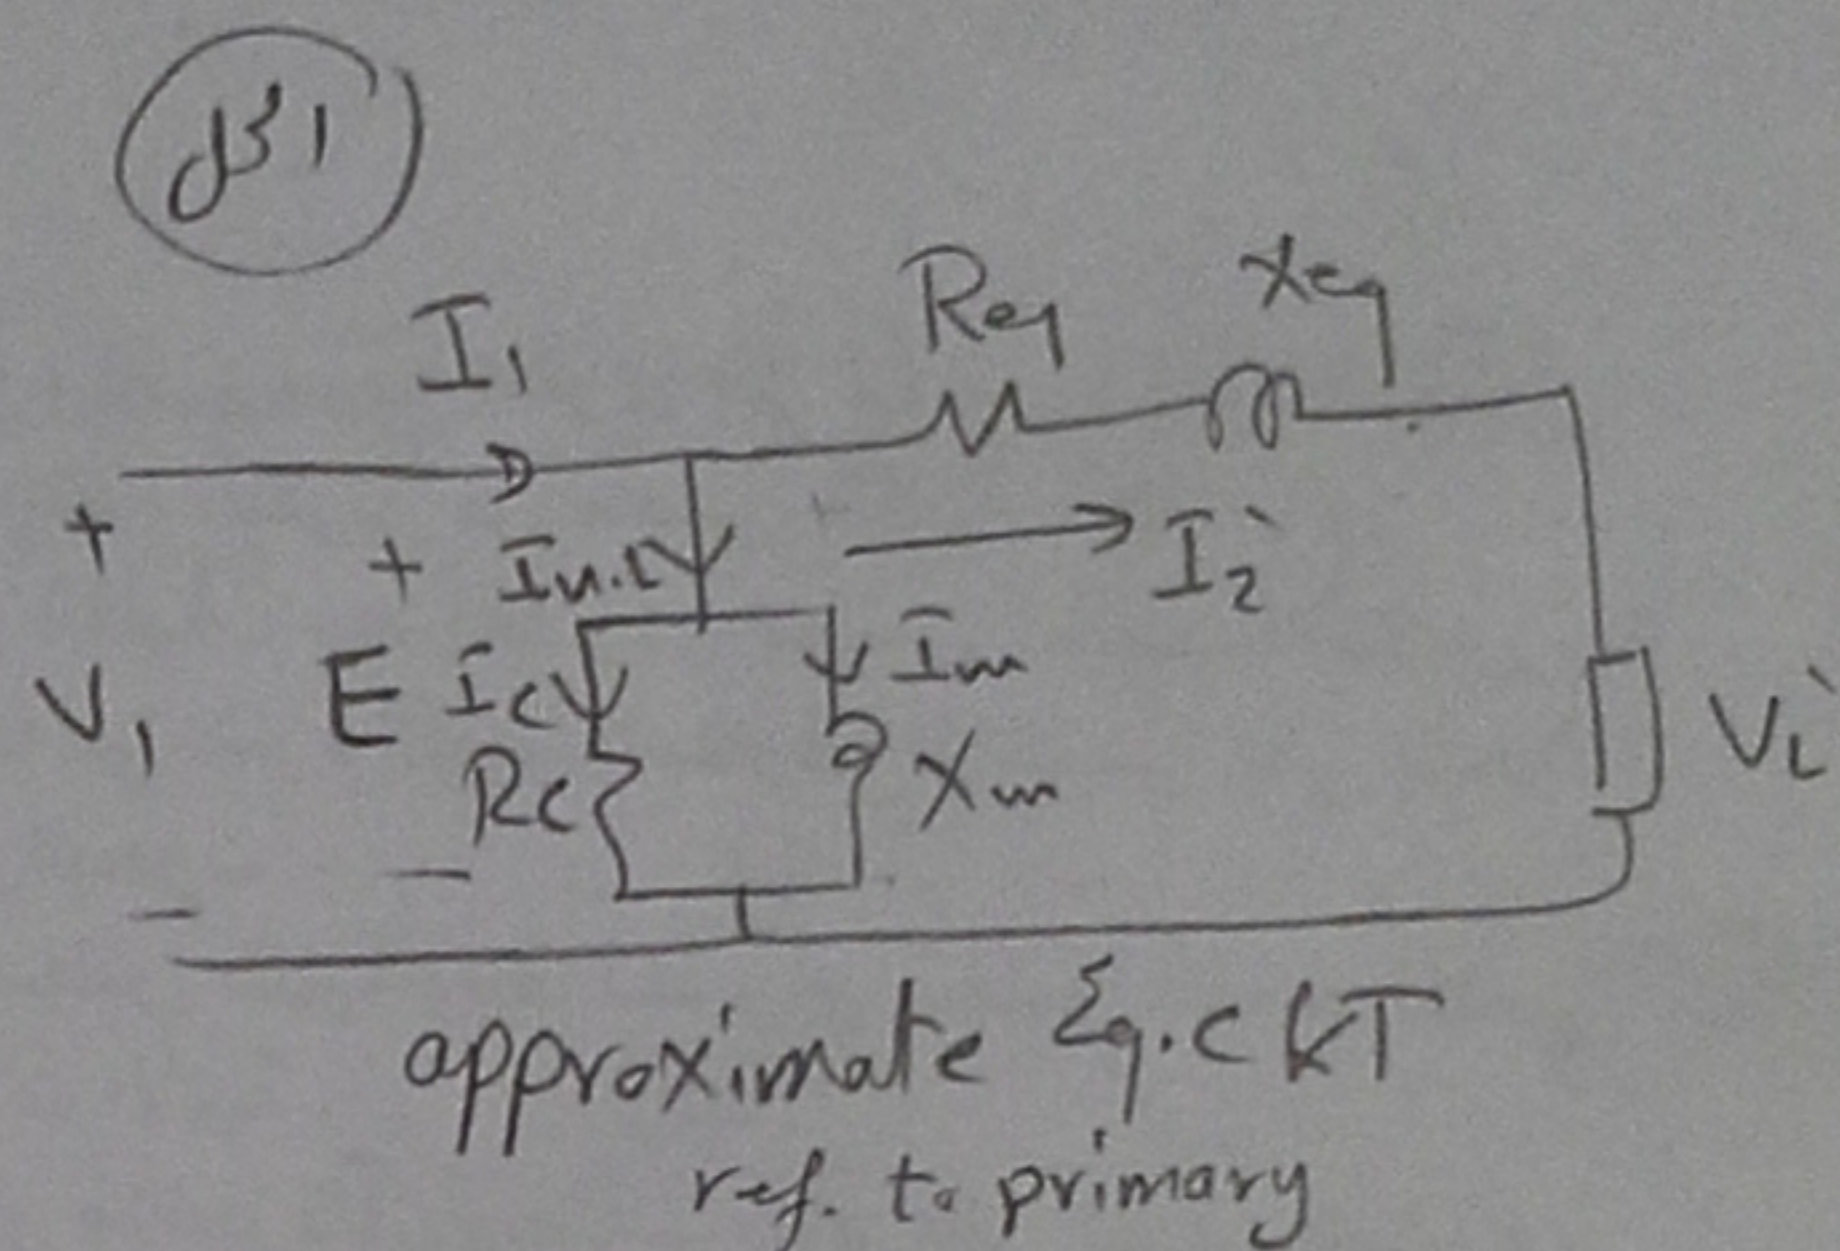 I₁
Req
Xeq
+
+
In.L
I₂`
E
Ic
Im
V₁
Rc
Xm
VL`
-
-
approximate Eq.ckT
ref. to primary